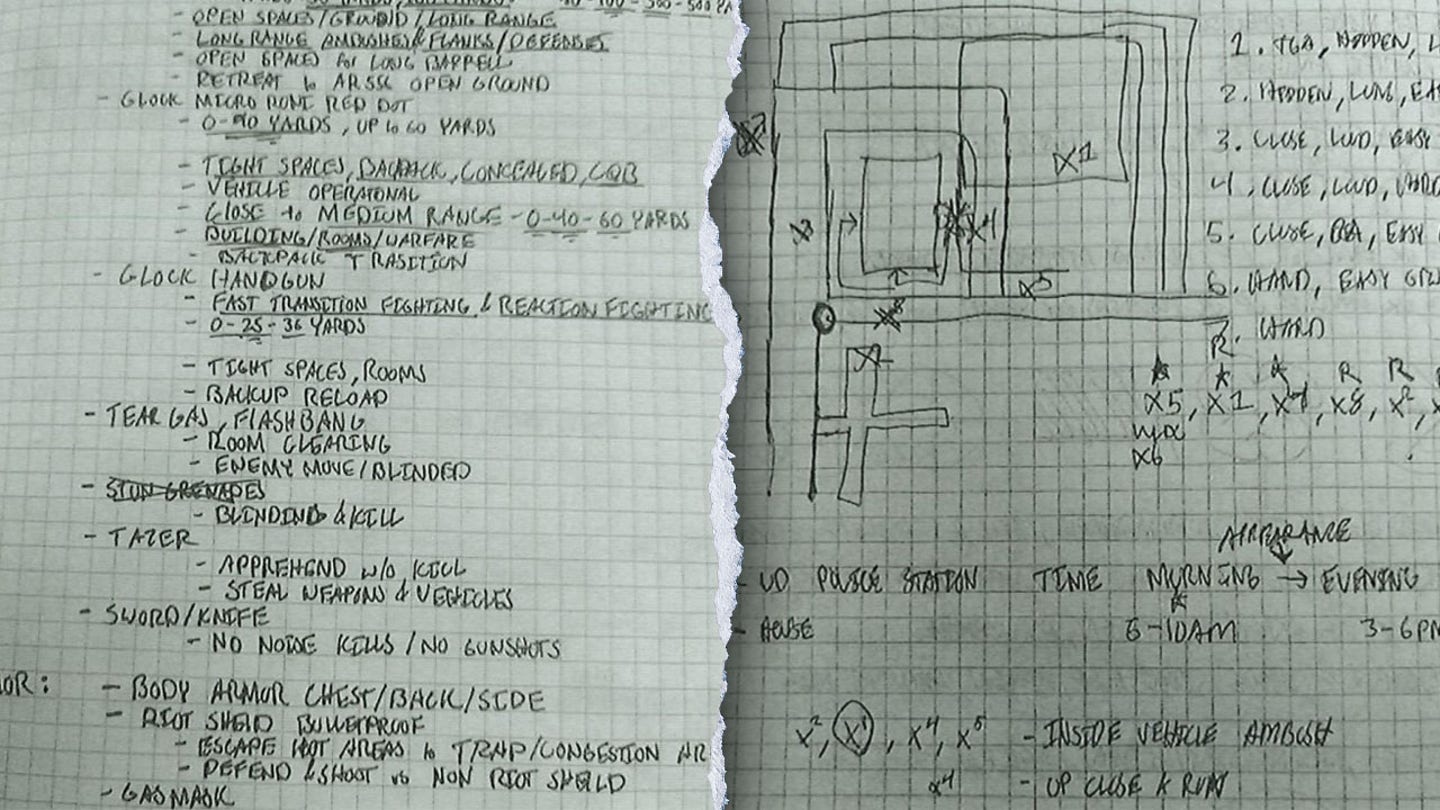 - OPEN SPACES/GROUND/LONG RANGE
- LONG RANGE AMBUSHES & FLANKS/DEFENSES
- OPEN SPACES for LONG BARRELL
- RETREAT to OPEN GROUND
- GLOCK MICRO RONI RED DOT
- 0-40 YARDS, UP to 60 YARDS
- TIGHT SPACES, BACKPACK, CONCEALED, CQB
- VEHICLE OPERATONAL
- CLOSE to MEDIUM RANGE - 0-40-60 YARDS
- BUILDING/ROOMS/WARFARE
- BACKPACK TRASITION
- GLOCK HANDGUN
- FAST TRANSITION FIGHTING & REACTION FIGHTING
- 0-25-36 YARDS
- TIGHT SPACES, ROOMS
- BACKUP RELOAD
- TEAR GAS, FLASHBANG
- ROOM CLEARING
- ENEMY MOVE/BLINDED
- STUN GRENADES
- BLINDIND & KILL
- TAZER
- APPREHEND W/O KILL
- STEAL WEAPONS & VEHICLES
- SWORD/KNIFE
- NO NOISE KILLS / NO GUNSHOTS
OR: - BODY ARMOR CHEST/BACK/SIDE
- RIOT SHEILD BULLETPROOF
- ESCAPE HOT AREAS to TRAP/CONGESTION AR
- DEFEND & SHOOT vs NON RIOT SHEILD
- GAS MASK
X1
X4
X5
X8
X2
1. HIDDEN,
2. HIDDEN, LONG, EA
3. CLOSE, EASY
4. CLOSE, HARD
5. CLOSE, EASY
6. HARD, EASY
7. HARD
R
R R
X5, X1, X4, X8, X2,
X6
APPEARANCE
- UD POLICE STATION TIME MORNING → EVENING
- HOUSE 6-10AM 3-6PM
X2, X1, X4, X5 - INSIDE VEHICLE AMBUSH
X4 - UP CLOSE & RUN